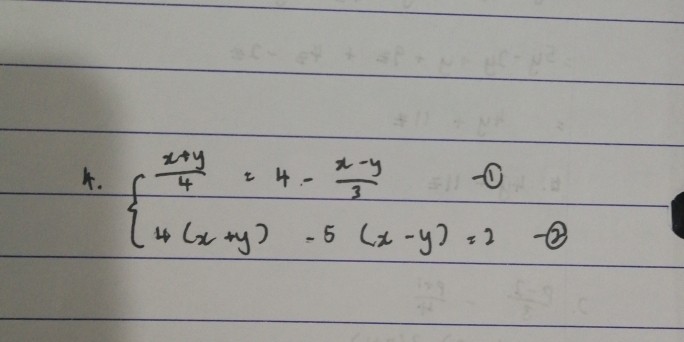 4. { (x+y)/4 = 4 - (x-y)/3 -①
4(x+y) - 5(x-y) = 2 -②